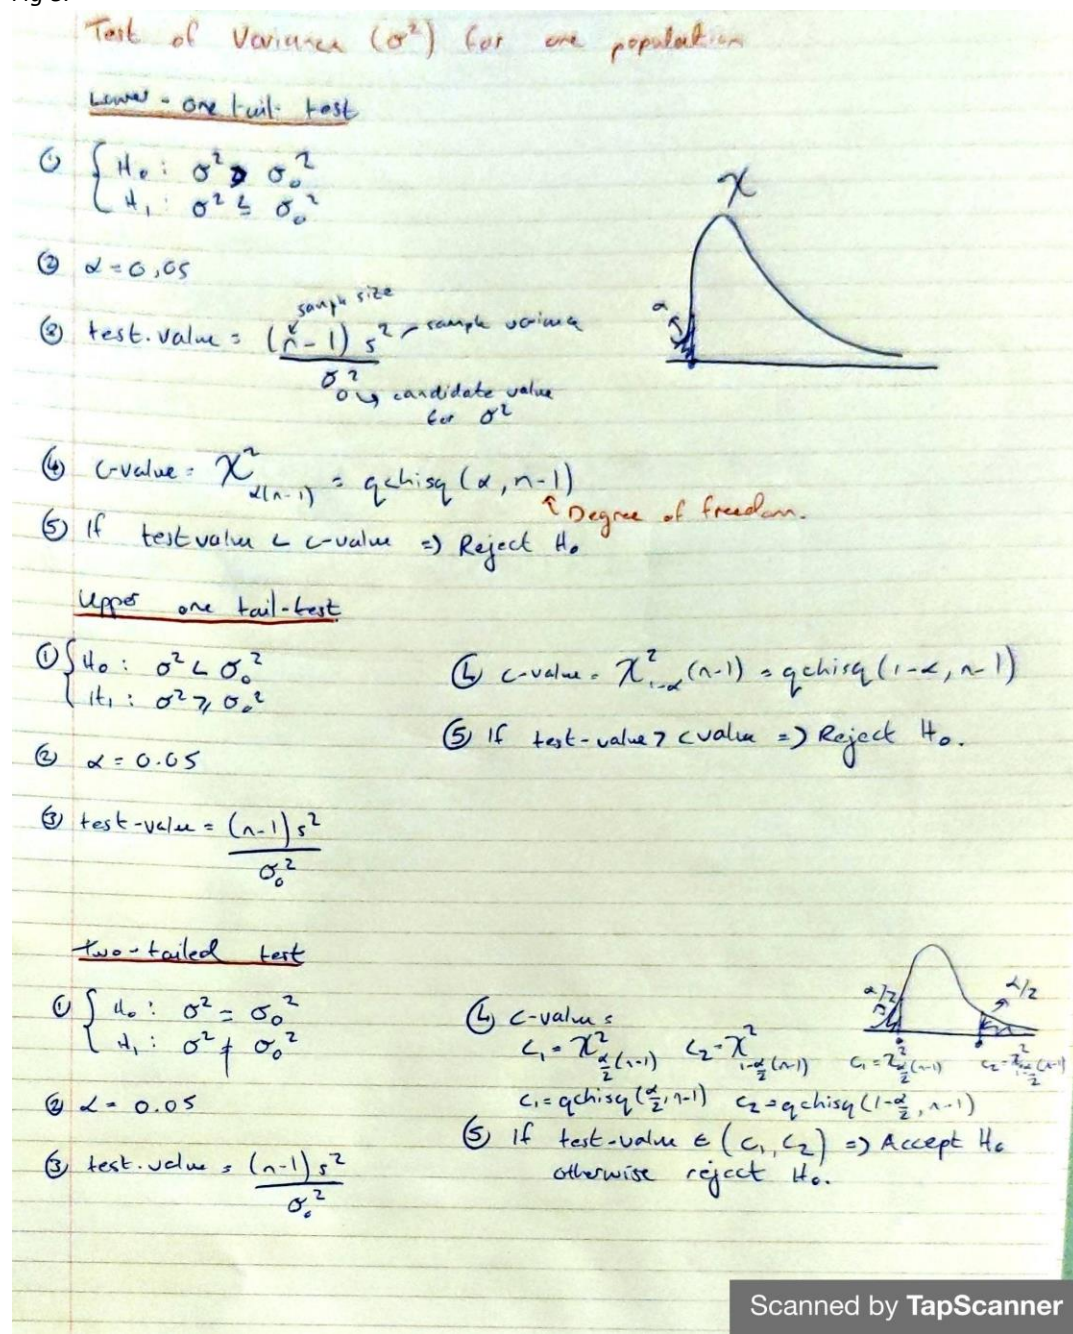 Test of Variance (σ²) for one population
Lower - one tail - test
① { H₀ : σ² > σ₀²
H₁ : σ² ≤ σ₀²
χ
② α = 0,05
α
sample size
③ test.value = (n - 1) s² / σ₀²
sample variance
candidate value
for σ²
④ C-value = χ²α(n-1) = qchisq (α, n-1)
Degree of freedom.
⑤ If test value < c-value => Reject H₀
Upper one tail-test
① { H₀ : σ² < σ₀²
H₁ : σ² ⩾ σ₀²
② α = 0.05
③ test-value = (n-1) s² / σ₀²
④ c-value = χ²1-α (n-1) = qchisq (1-α, n-1)
⑤ If test-value > cvalue => Reject H₀.
Two-tailed test
① { H₀ : σ² = σ₀²
H₁ : σ² ≠ σ₀²
② α = 0.05
③ test.value = (n-1) s² / σ₀²
④ C-value =
c₁ = χ²α/2 (n-1) c₂ = χ²1-α/2 (n-1)
c₁ = qchisq (α/2, n-1) c₂ = qchisq (1-α/2, n-1)
⑤ If test-value ∈ (c₁, c₂) => Accept H₀
otherwise reject H₀.
α/2 α/2
Scanned by TapScanner